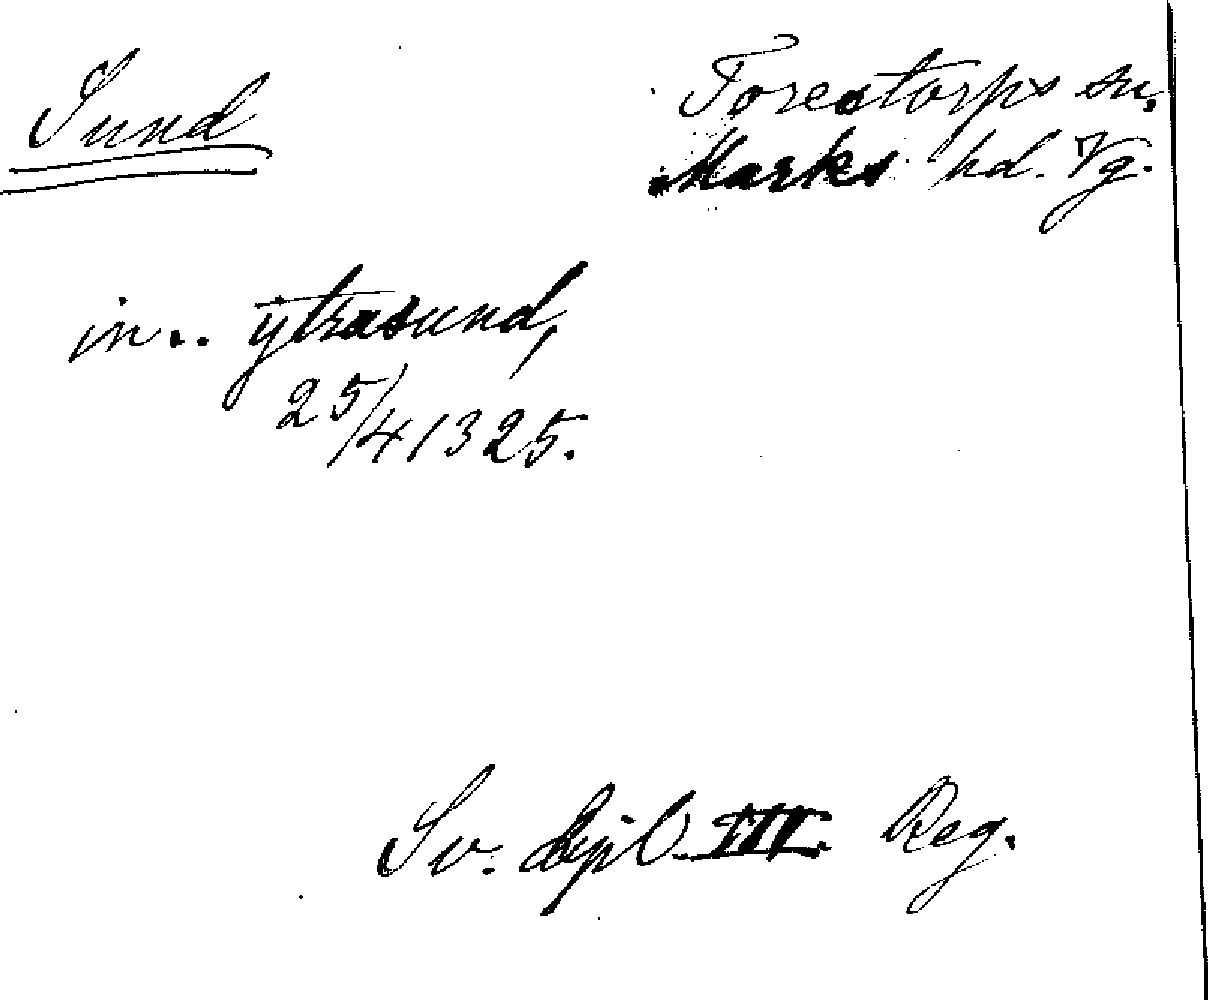 Sund
Torestorps sn.
Marks hd. Vg.
in.. ÿtrasund,
25/4 1325.
Sv. dipl. III. Reg.